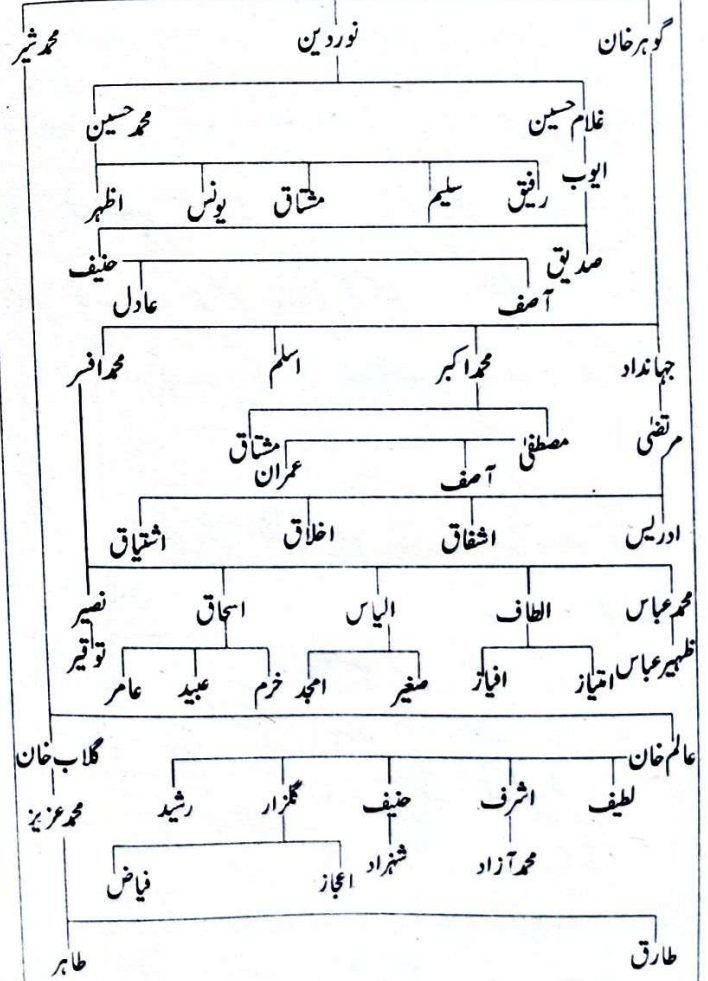 گوہر خان نور دین محمد شیر
غلام حسین محمد حسین
ایوب رفیق سلیم مشتاق یونس اظہر
صدیق حنیف
آصف عادل
جہانداد محمد اکبر اسلم محمد افسر
مرتضیٰ مصطفیٰ مشتاق
آصف عمران
ادریس اشفاق اخلاق اشتیاق
محمد عباس الطاف الیاس اسحاق نصیر
ظہیر عباس امتیاز افیاز صغیر امجد خرم عبید عامر توقیر
عالم خان گلاب خان
لطیف اشرف حنیف گلزار رشید محمد عزیز
محمد آزاد شہزاد اعجاز فیاض
طارق طاہر